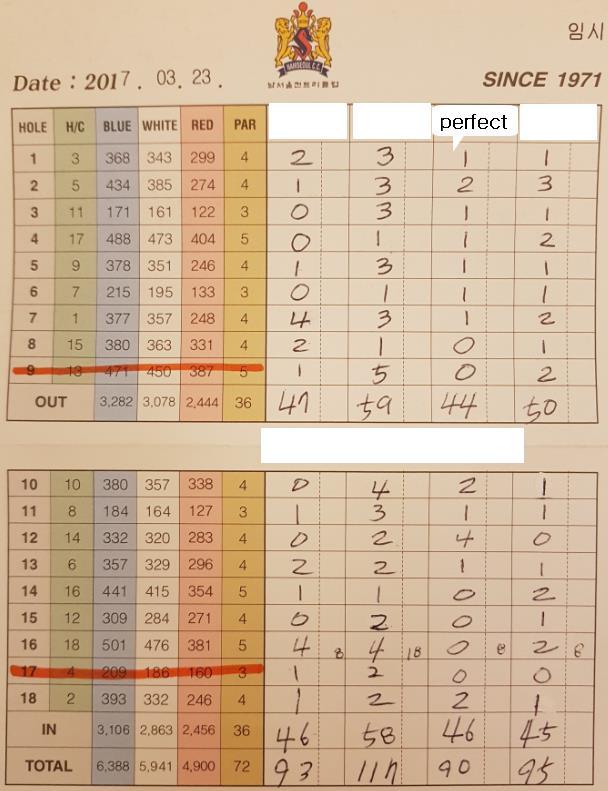 임시
NAMSEOUL C.C.
남서울컨트리클럽
Date : 2017. 03. 23.
SINCE 1971
HOLE H/C BLUE WHITE RED PAR perfect
1 3 368 343 299 4 2 3 1 1
2 5 434 385 274 4 1 3 2 3
3 11 171 161 122 3 0 3 1 1
4 17 488 473 404 5 0 1 1 2
5 9 378 351 246 4 1 3 1 1
6 7 215 195 133 3 0 1 1 1
7 1 377 357 248 4 4 3 1 2
8 15 380 363 331 4 2 1 0 1
9 13 471 450 387 5 1 5 0 2
OUT 3,282 3,078 2,444 36 47 59 44 50
10 10 380 357 338 4 0 4 2 1
11 8 184 164 127 3 1 3 1 1
12 14 332 320 283 4 0 2 4 0
13 6 357 329 296 4 2 2 1 1
14 16 441 415 354 5 1 1 0 2
15 12 309 284 271 4 0 2 0 1
16 18 501 476 381 5 4 8 4 18 0 8 2 6
17 4 209 186 160 3 1 2 0 0
18 2 393 332 246 4 1 2 2 1
IN 3,106 2,863 2,456 36 46 58 46 45
TOTAL 6,388 5,941 4,900 72 93 117 90 95